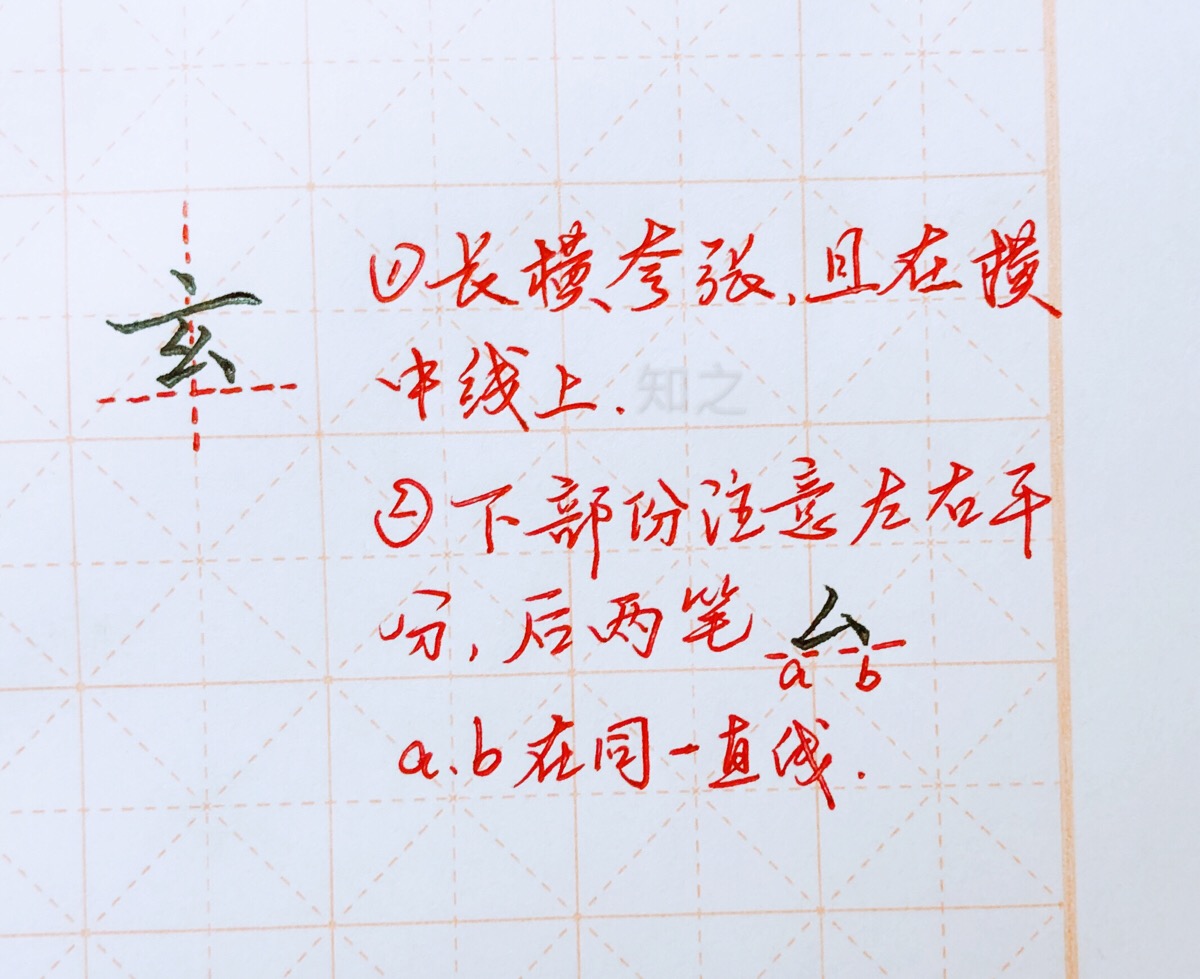 玄
①长横夸张,且在横
中线上.
知之
②下部份注意左右平
分,后两笔厶
a b
a.b在同一直线.